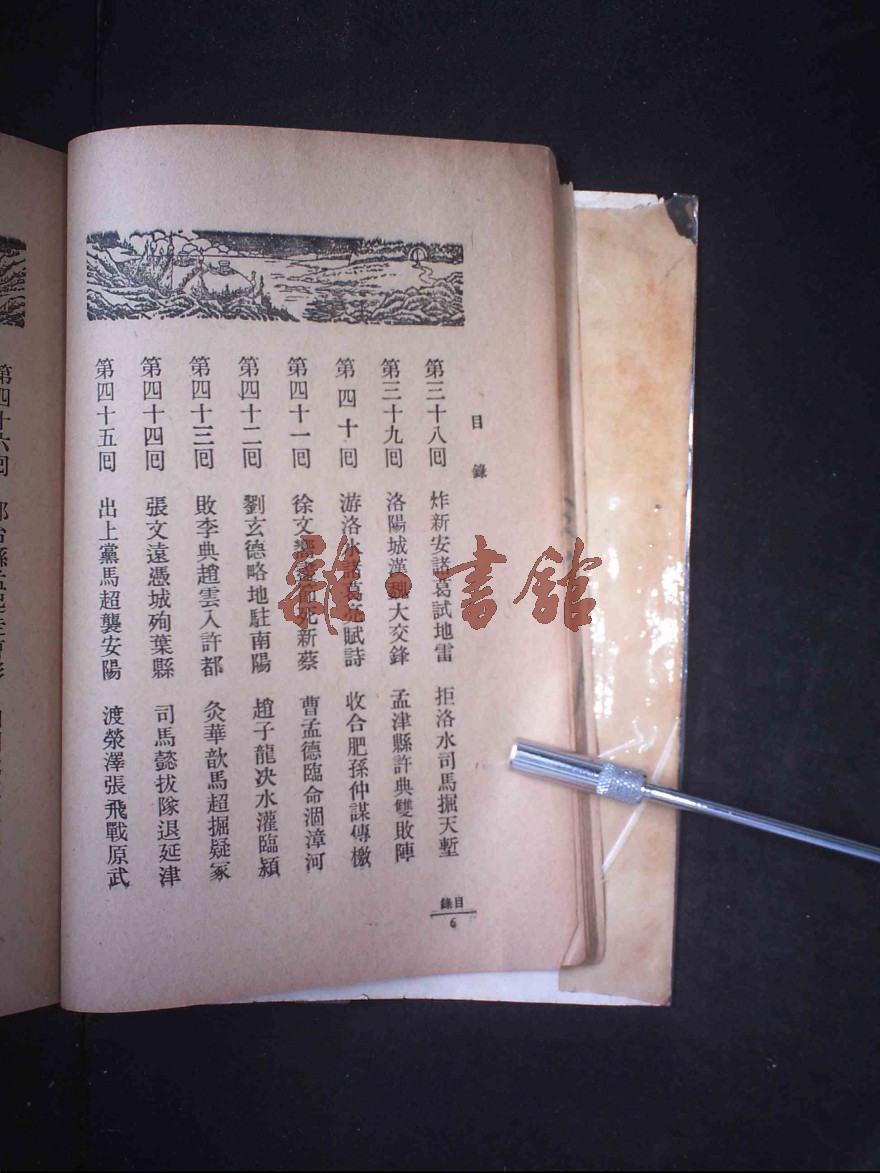 目錄
第三十八囘 炸新安諸葛試地雷 拒洛水司馬掘天塹
第三十九囘 洛陽城漢魏大交鋒 孟津縣許典雙敗陣
第四十囘 游洛水諸葛亮賦詩 收合肥孫仲謀傳檄
第四十一囘 徐文嚮盡節死新蔡 曹孟德臨命涸漳河
第四十二囘 劉玄德略地駐南陽 趙子龍決水灌臨潁
第四十三囘 敗李典趙雲入許都 灸華歆馬超掘疑冢
第四十四囘 張文遠憑城殉葉縣 司馬懿拔隊退延津
第四十五囘 出上黨馬超襲安陽 渡滎澤張飛戰原武
目錄
6
第四十六囘
雜·書館